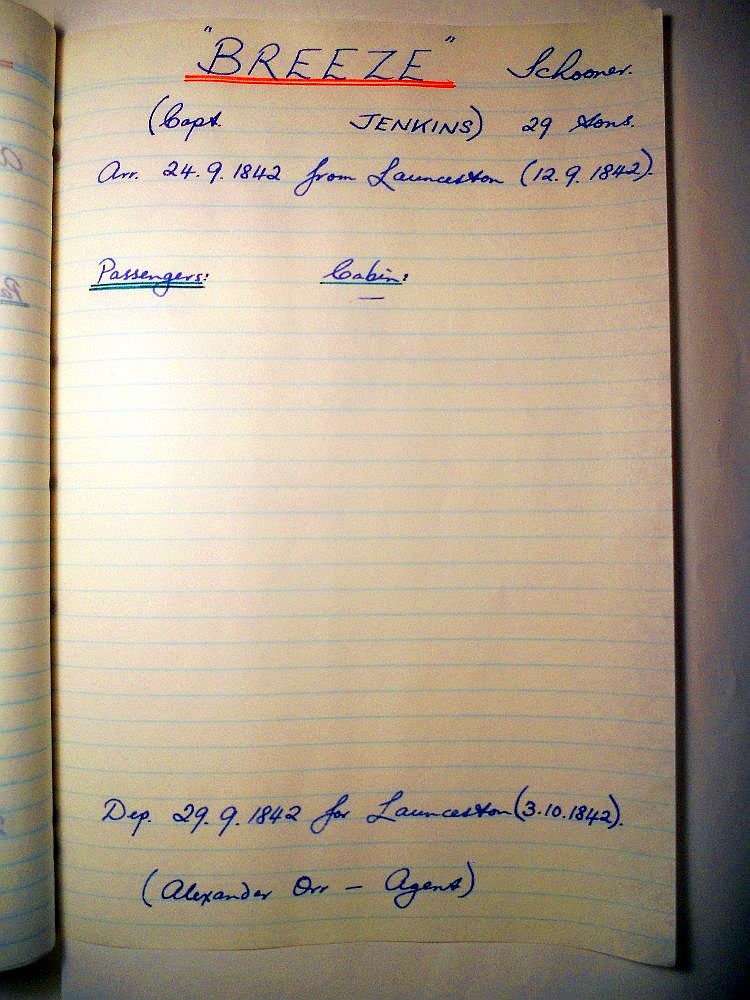 "BREEZE" Schooner.
(Capt. JENKINS) 29 tons.
Arr. 24.9.1842 from Launceston (12.9.1842).
Passengers: Cabin:
—
Dep. 29.9.1842 for Launceston (3.10.1842).
(Alexander Orr — Agent)